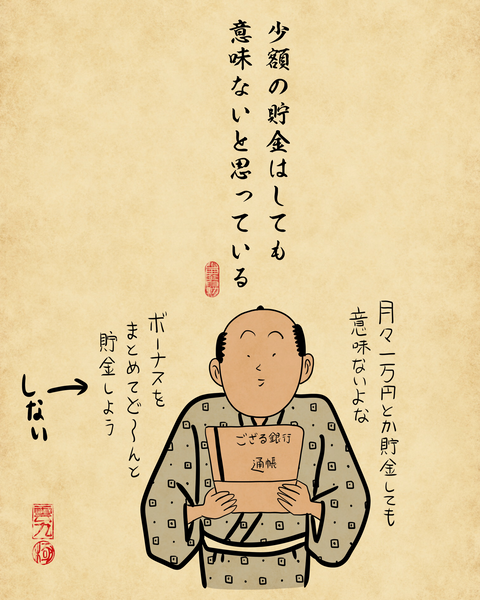 少額の貯金はしても
意味ないと思っている
月々一万円とか貯金しても
意味ないよな
ござる銀行
通帳
ボーナスを
まとめてど〜んと
貯金しよう
しない